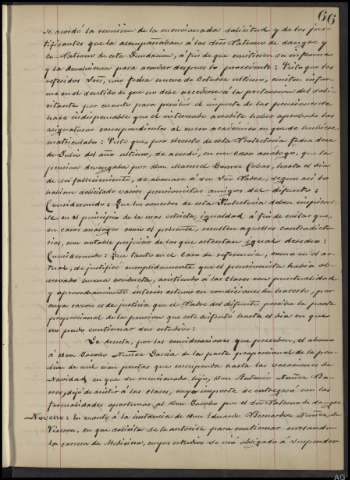 66
se acordó la remisión de la mencionada solicitud y de los jus-
tificantes que la acompañaban a los Sres Patronos de sangre y
ex-Patrono de esta Fundación, a fin de que emitiesen su informe
y lo devolvieran para acordar después lo procedente: Visto que los
referidos Sres, con fecha nueve de Octubre último, emiten infor-
me en el sentido de que no debe accederse a la pretensión del soli-
citante por cuanto para percibir el importe de las pensiones se
hace indispensable que el interesado acredite haber aprobado las
asignaturas correspondientes al curso académico en que se hubiese
matriculado: Visto que por decreto de esta Protectoría fecha doce
de Julio del año último, se acordó, en un caso análogo, que las
pensiones devengadas por don Manuel Suarez Cobas, hasta el día
de su fallecimiento, se abonaran a su Sr. Padre, según así lo
habían solicitado varios pensionistas amigos del difunto:
Considerando: Que los acuerdos de esta Protectoría deben inspirar-
se en el principio de la más estricta igualdad a fin de evitar que,
en casos análogos como el presente, resulten aquellos contradicto-
rios, con notable perjuicio de los que ostentan igual derecho:
Considerando: Que tanto en el caso de referencia, como en el ac-
tual, se justifica cumplidamente que el pensionista había ob-
servado buena conducta, asistiendo a las clases con puntualidad
y aprovechamiento mientras estuvo en condiciones de hacerlo, por
cuya razón es de justicia que el Padre del difunto, perciba la parte
proporcional de la pension que este disfrutó hasta el día en que
no pudo continuar sus estudios:
Se acuerda, por las consideraciones que preceden, el abono
a don Jacobo Nuñez García de la parte proporcional de la pen-
sión de mil cien pesetas que corresponda hasta las vacaciones de
Navidad, en que su mencionado hijo, don Antonio Nuñez
dejó de asistir a las clases, cuyo importe se entregará con las
formalidades oportunas al don Jacobo por el Sr. Patrono de sangre
Noveno: En cuanto a la instancia de don Eduardo Nuñez de
en que solicita se le autorice para continuar cursando
la carrera de Medicina, cuyos estudios se vió obligado a suspender